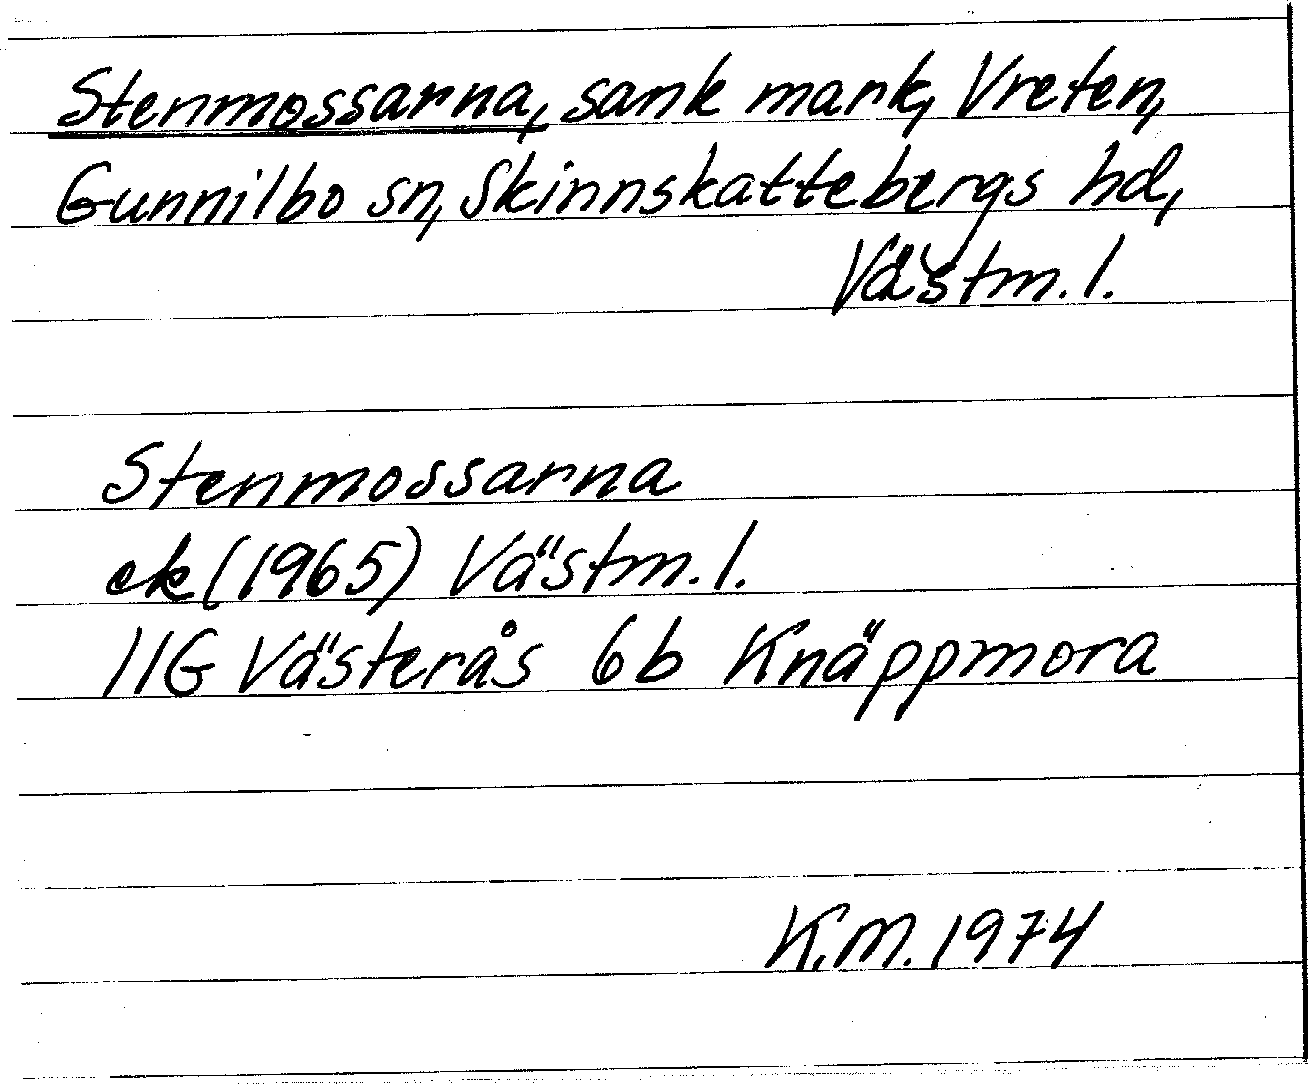 Stenmossarna, sank mark, Vreten,
Gunnilbo sn, Skinnskattebergs hd,
Västm. l.
Stenmossarna
ek (1965) Västm. l.
11G Västerås 6b Knäppmora
K.M. 1974